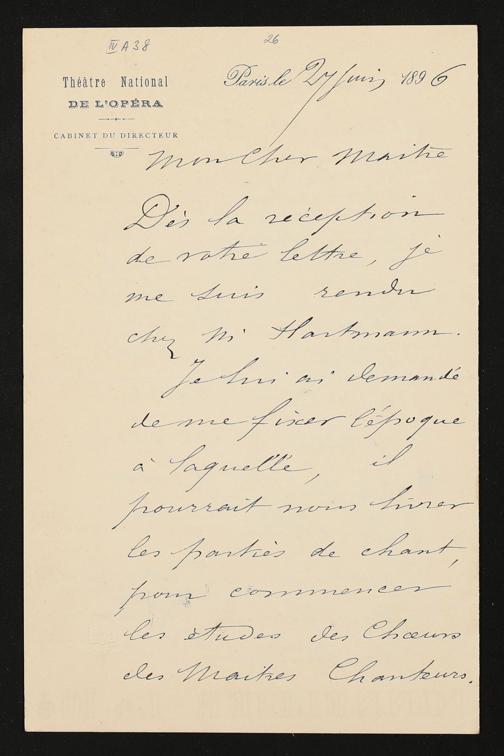 IV A 38
26
Théâtre National
DE L'OPÉRA
CABINET DU DIRECTEUR
Paris, le 27 Juin 1896
Mon Cher Maitre
Dès la réception
de votre lettre, je
me suis rendu
chez M Hartmann.
Je lui ai demandé
de me fixer l'époque
à laquelle, il
pourrait nous livrer
les parties de chant,
pour commencer
les études des Chœurs
des Maitres Chanteurs.